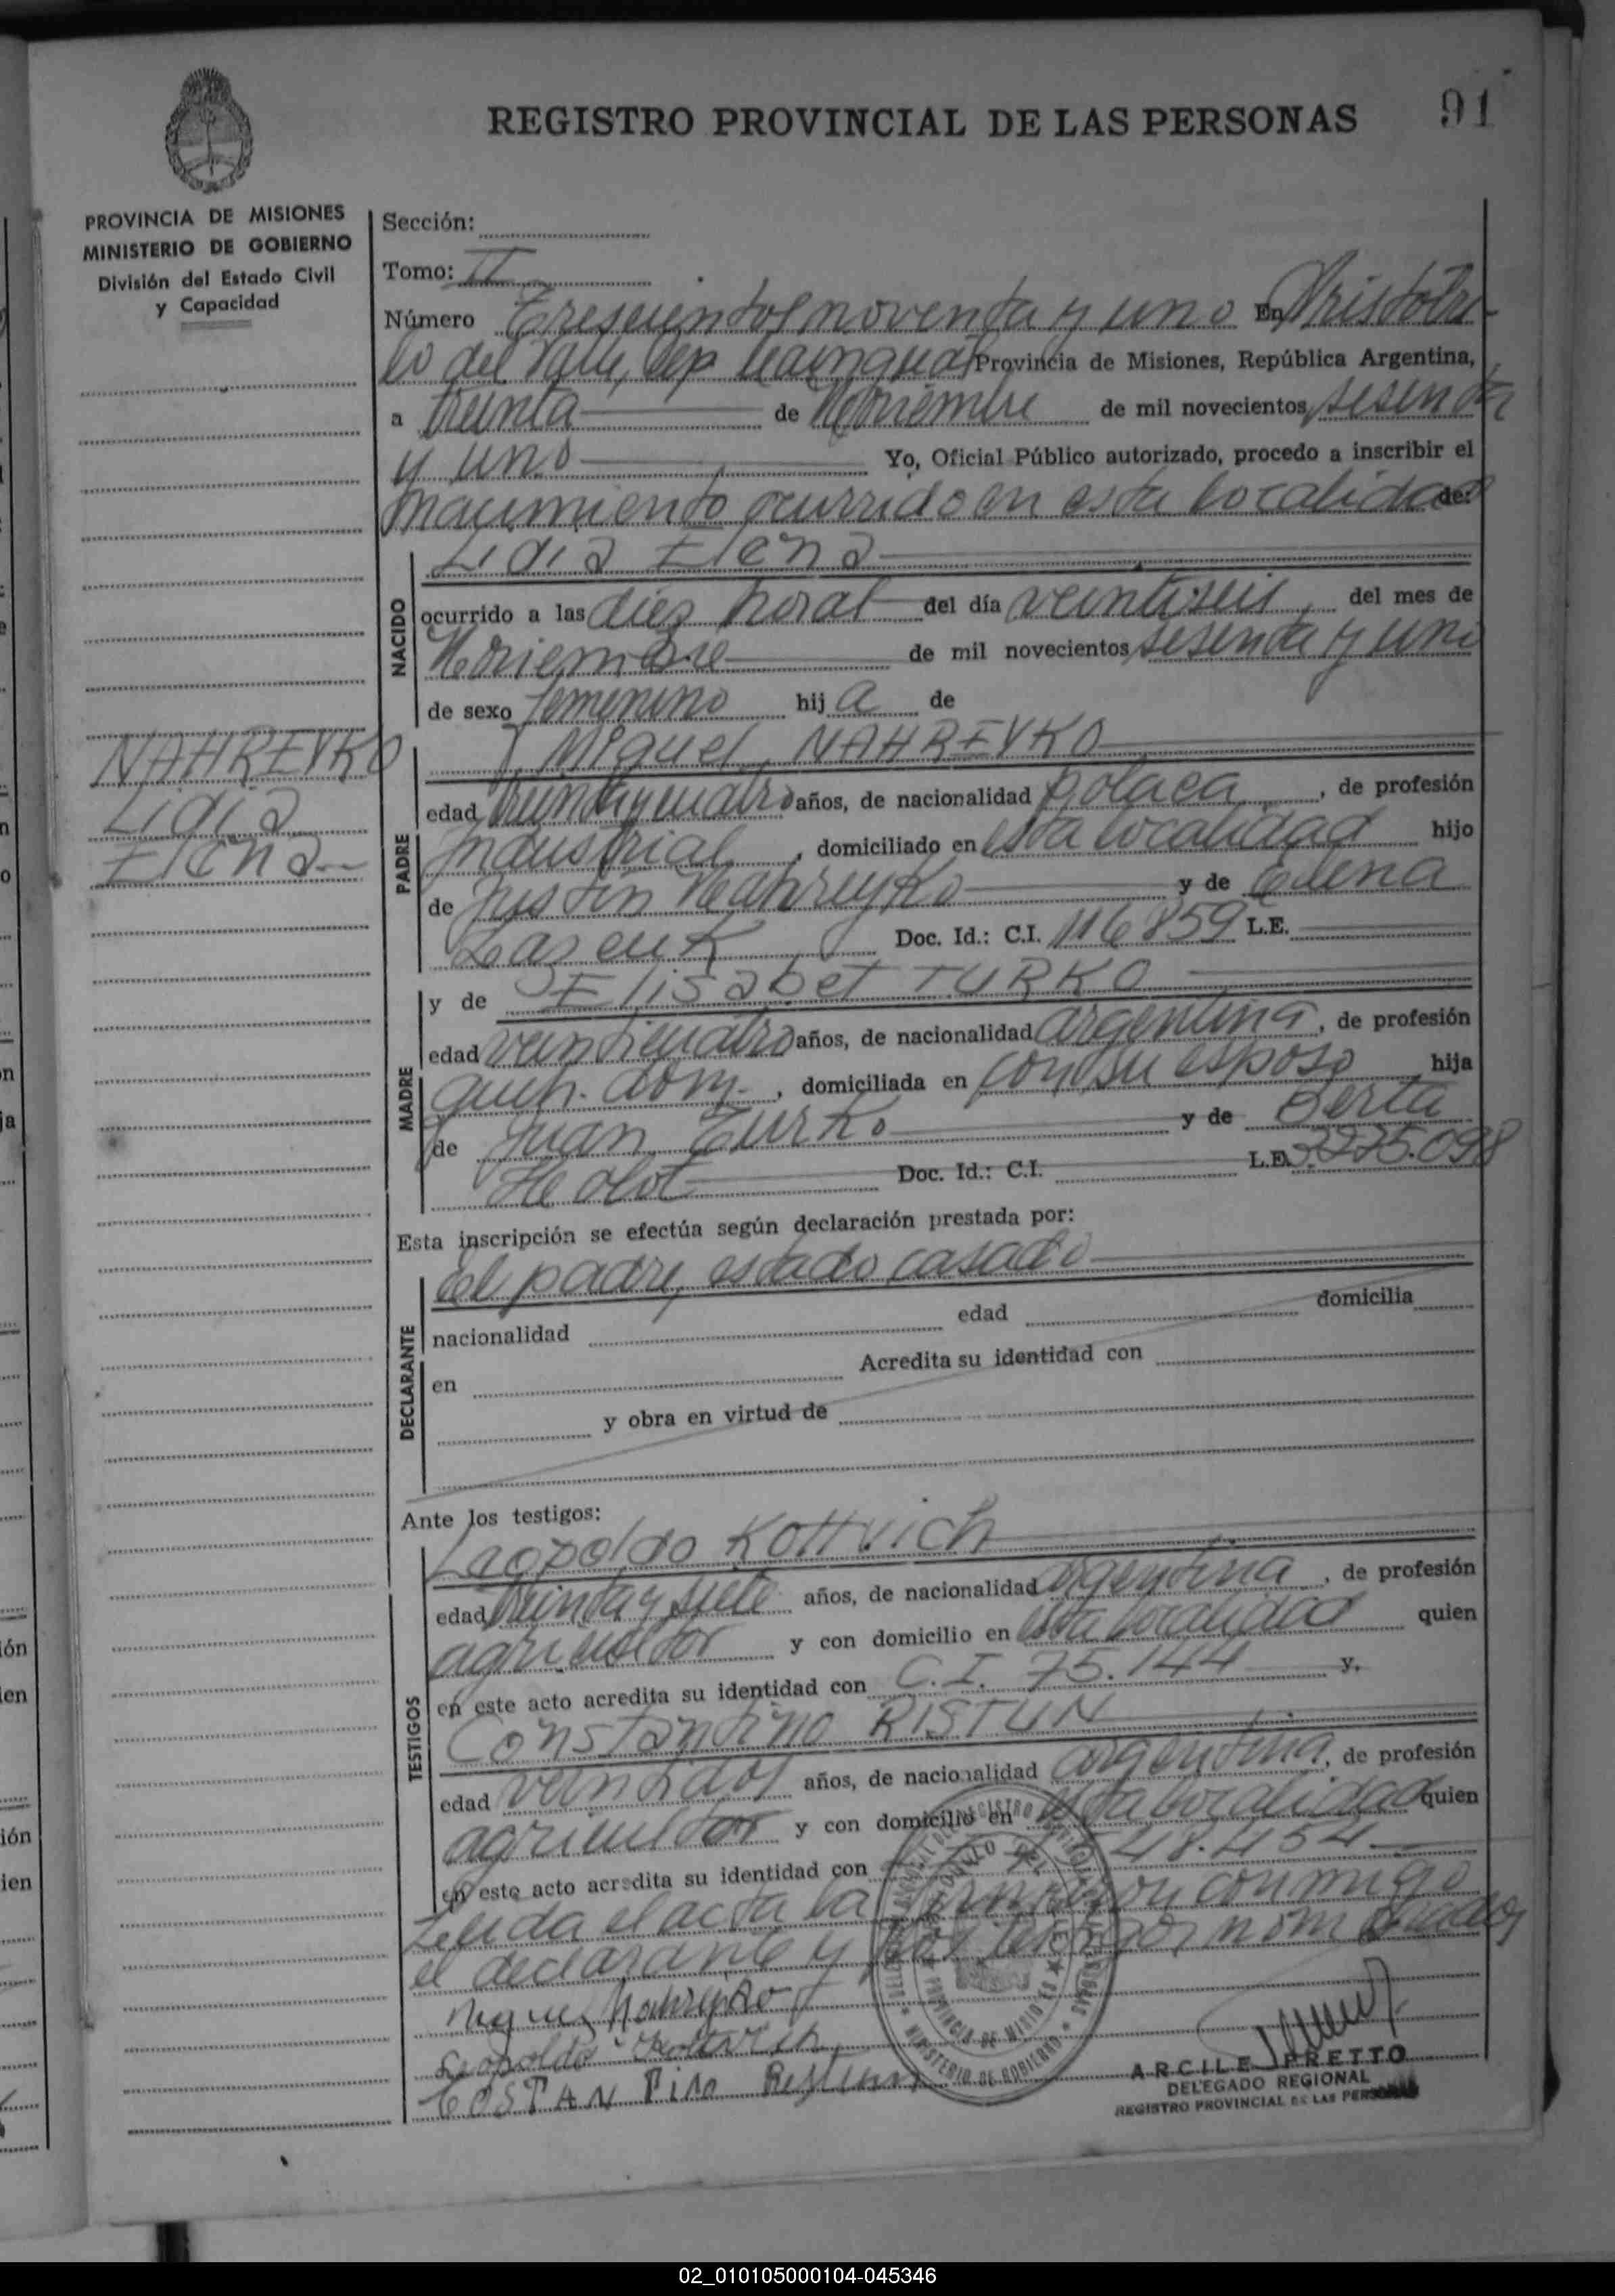 REGISTRO PROVINCIAL DE LAS PERSONAS 91
PROVINCIA DE MISIONES
MINISTERIO DE GOBIERNO
División del Estado Civil
y Capacidad
NAHREYKO
Lidia
Elena
Sección:
Tomo: II
Número Trescientos noventa y uno En Aristóbu-
lo del Valle, Dep. Cainguás Provincia de Misiones, República Argentina,
a treinta de Noviembre de mil novecientos sesenta
y uno Yo, Oficial Público autorizado, procedo a inscribir el
nacimiento ocurrido en esta localidad de:
NACIDO
Lidia Elena
ocurrido a las diez horas del día veintiseis del mes de
Noviembre de mil novecientos sesenta y uno
de sexo femenino hija de
PADRE
Miguel NAHREYKO
edad treinta y cuatro años, de nacionalidad polaca, de profesión
Industrial, domiciliado en esta localidad hijo
de Justin Nahreyko y de Elena
Laseuk Doc. Id.: C.I. 116859 L.E.
MADRE
y de Elisabet TURKO
edad veinticuatro años, de nacionalidad argentina, de profesión
queh. dom., domiciliada en con su esposo hija
de Juan Turko y de Berta
Doc. Id.: C.I. L.E. 3225.098
Esta inscripción se efectúa según declaración prestada por:
DECLARANTE
El padre, estado casado
nacionalidad edad domicilia
en Acredita su identidad con
y obra en virtud de
Ante los testigos:
TESTIGOS
Leopoldo Kottvich
edad treinta y siete años, de nacionalidad argentina, de profesión
agricultor y con domicilio en esta localidad quien
en este acto acredita su identidad con C.I. 75.144 y,
Constantino RISTUN
edad veintidos años, de nacionalidad argentina, de profesión
agricultor y con domicilio en esta localidad quien
en este acto acredita su identidad con 48.454
Leida el acta la firmaron conmigo
el declarante y los testigos nombrados
Miguel Nahreyko
Leopoldo
COSTANTINO
PROVINCIA DE MISIONES
MINISTERIO DE GOBIERNO
ARCILE PRETTO
DELEGADO REGIONAL
REGISTRO PROVINCIAL DE LAS PERSONAS
02_010105000104-045346